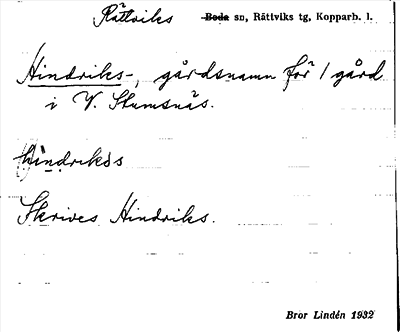 Rättviks Boda sn, Rättviks tg, Kopparb. l.
Hindriks-, gårdsnamn för 1 gård
i V. Stumsnäs.
hindrikəs
Skrives Hindriks.
Bror Lindén 1932